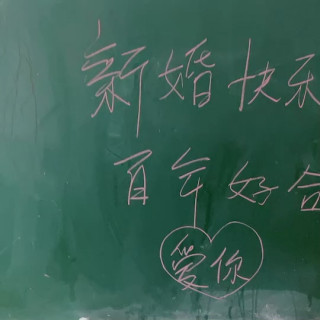 新婚快乐
百年好合
爱你